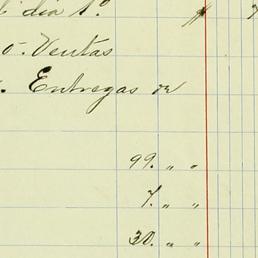 dia 1º
Ventas
Entregas
99. " "
7. " "
30. " "